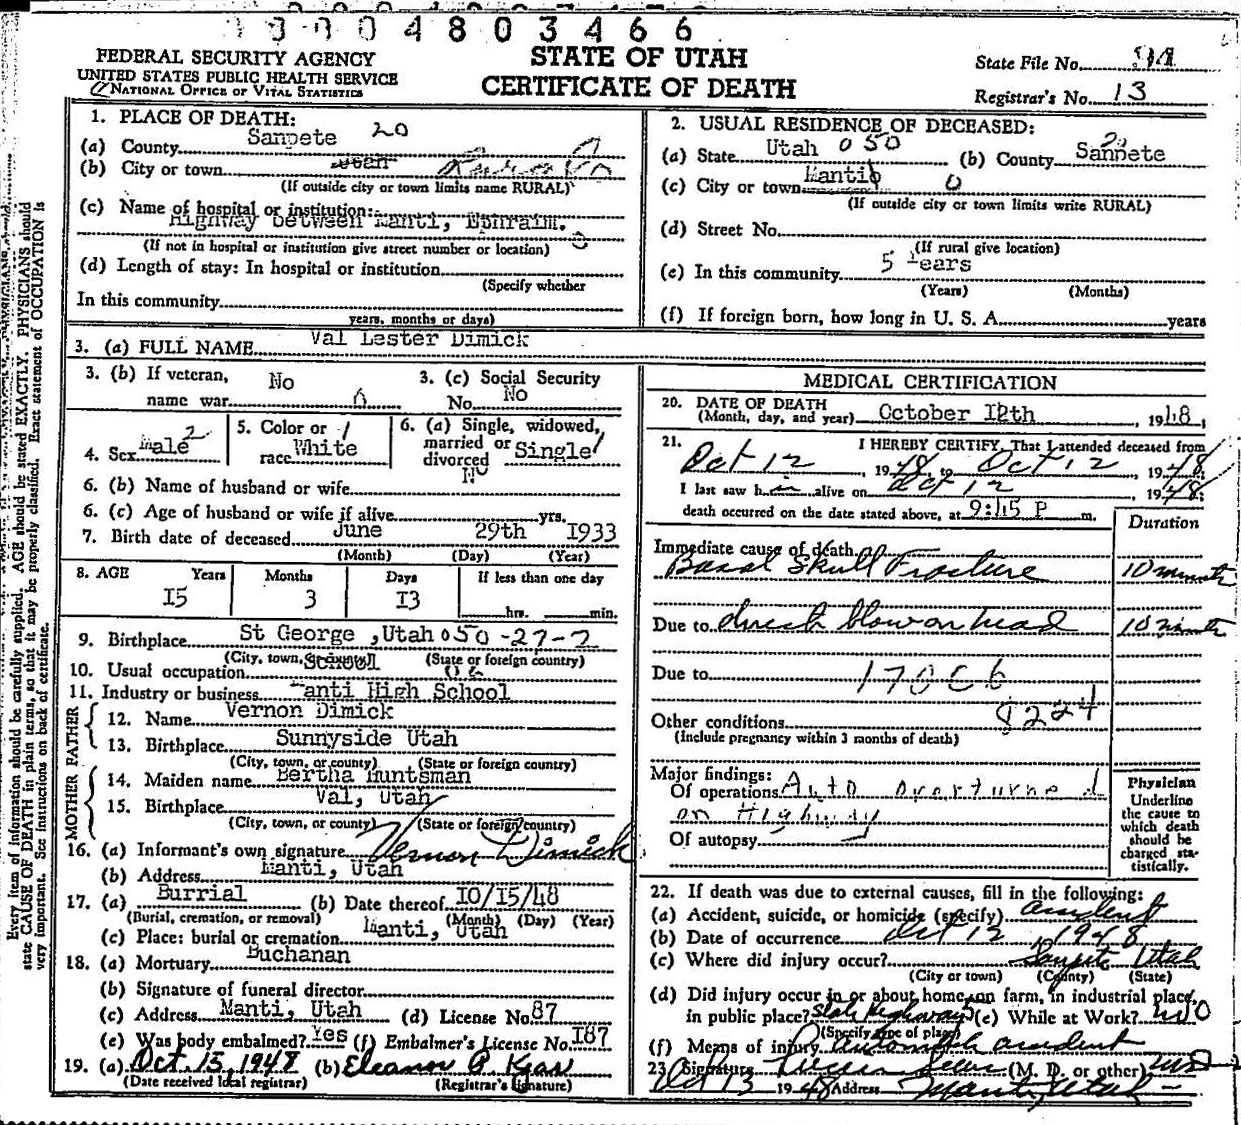 4 8 0 3 4 6 6
FEDERAL SECURITY AGENCY
UNITED STATES PUBLIC HEALTH SERVICE
NATIONAL OFFICE OF VITAL STATISTICS
STATE OF UTAH
CERTIFICATE OF DEATH
State File No.
Registrar's No. 13
1. PLACE OF DEATH:
(a) County Sanpete 20
(b) City or town Utah
(If outside city or town limits name RURAL)
(c) Name of hospital or institution:
Highway between Manti, Ephraim.
(If not in hospital or institution give street number or location)
(d) Length of stay: In hospital or institution
(Specify whether
In this community
years, months or days)
2. USUAL RESIDENCE OF DECEASED:
(a) State Utah 050 (b) County Sanpete 20
(c) City or town Manti 0
(If outside city or town limits write RURAL)
(d) Street No.
(If rural give location)
(e) In this community 5 Years
(Years) (Months)
(f) If foreign born, how long in U. S. A. years
3. (a) FULL NAME Val Lester Dimick
3. (b) If veteran, name war No
3. (c) Social Security No. No
4. Sex Male 2
5. Color or race White 1
6. (a) Single, widowed, married or divorced Single 1
6. (b) Name of husband or wife No
6. (c) Age of husband or wife if alive yrs.
7. Birth date of deceased June 29th I933
(Month) (Day) (Year)
8. AGE Years Months Days If less than one day
I5 3 I3 hrs. min.
9. Birthplace St George ,Utah 050-27-2
(City, town, or county) (State or foreign country)
10. Usual occupation School
11. Industry or business Manti High School
FATHER
12. Name Vernon Dimick
13. Birthplace Sunnyside Utah
(City, town, or county) (State or foreign country)
MOTHER
14. Maiden name Bertha Huntsman
15. Birthplace Val, Utah
(City, town, or county) (State or foreign country)
16. (a) Informant's own signature Vernon Dimick
(b) Address Manti, Utah
17. (a) Burrial (b) Date thereof I0/I5/48
(Burial, cremation, or removal) (Month) (Day) (Year)
(c) Place: burial or cremation Manti, Utah
18. (a) Mortuary Buchanan
(b) Signature of funeral director
(c) Address Manti, Utah (d) License No. 87
(e) Was body embalmed? Yes (f) Embalmer's License No. I87
19. (a) Oct. 15, 1948 (b) Eleanor P.
(Date received local registrar) (Registrar's Signature)
MEDICAL CERTIFICATION
20. DATE OF DEATH
(Month, day, and year) October I2th, 1948;
21. I HEREBY CERTIFY, That I attended deceased from
Oct 12, 1948, to Oct 12 1948;
I last saw him alive on Oct 12, 1948;
death occurred on the date stated above, at 9:45 P m.
Duration
Immediate cause of death
Basal Skull Fracture 10 minutes
Due to direct blow on head 10 minutes
Due to 170C6
8224
Other conditions
(Include pregnancy within 3 months of death)
Major findings:
Of operations Auto overturned
on Highway
Of autopsy
Physician
Underline
the cause to
which death
should be
charged sta-
tistically.
22. If death was due to external causes, fill in the following:
(a) Accident, suicide, or homicide (specify) accident
(b) Date of occurrence Oct 12, 1948
(c) Where did injury occur? Sanpete Utah
(City or town) (County) (State)
(d) Did injury occur in or about home, on farm, in industrial place,
in public place? State Highway (e) While at Work? no
(Specify type of place)
(f) Means of injury automobile accident
23. Signature (M. D. or other) MD
Oct 13 1948 Address Manti, Utah
Every item of information should be carefully supplied. AGE should be stated EXACTLY. PHYSICIANS should
state CAUSE OF DEATH in plain terms, so that it may be properly classified. Exact statement of OCCUPATION is
very important. See instructions on back of certificate.